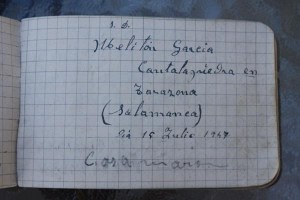 S. D.
Melitón García
Cantalapiedra en
Tarazona
(Salamanca)
Día 15 Julio 1947